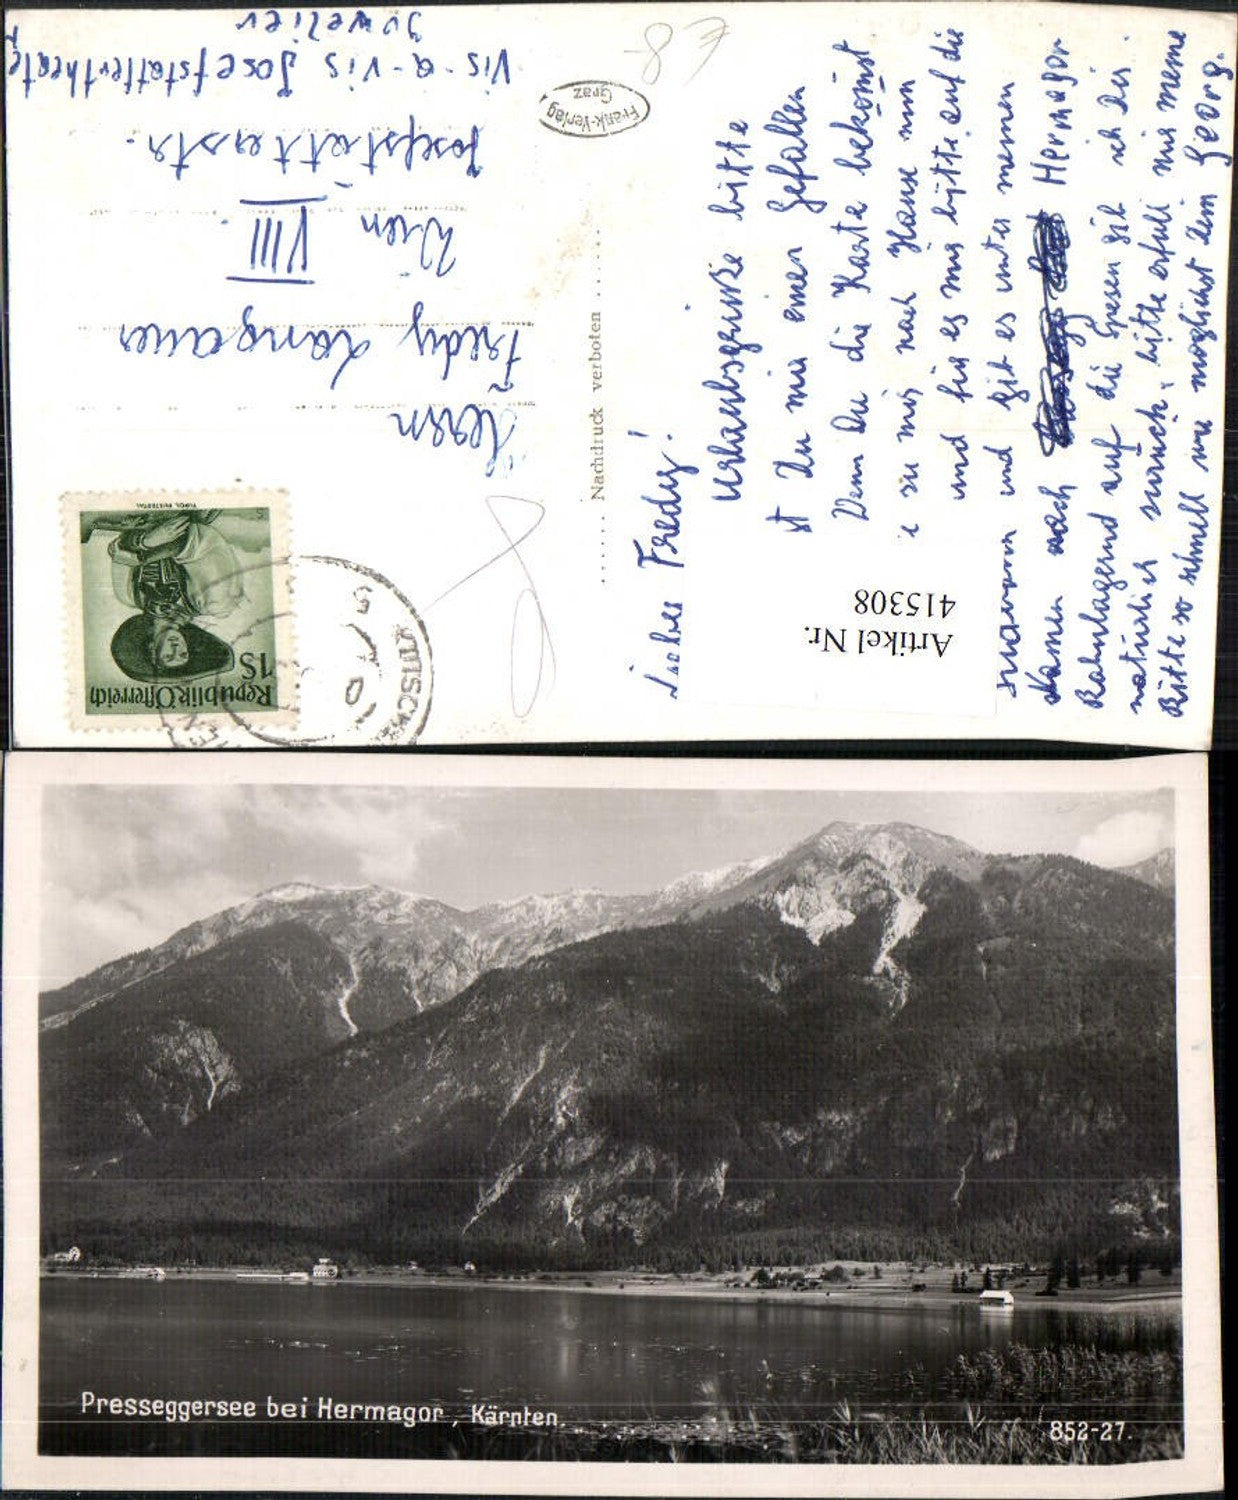 Lieber Fredy!
Urlaubsgrüße bitte
st Du mir einen Gefallen
Wenn Du die Karte bekomst
e zu mir nach Hause nim
und für es mir bitte auf die
und gib es unter meinen
Namen nach Hermagor
Bahnlagernd auf die Spesen gib ich Dir
natürlich zurück. bitte erfüll mir meine
Bitte so schnell wie möglichst Dein Georg.
Artikel Nr.
415308
Nachdruck verboten
Frank-Verlag
Graz
€ 8
Herrn
Fredy Langauer
Wien VIII
Josefstätterstr.
Vis-a-vis Josefstättertheater
Juwelier
Republik Österreich
1S
TIROL, PUSTERTAL
Presseggersee bei Hermagor, Kärnten.
852-27.